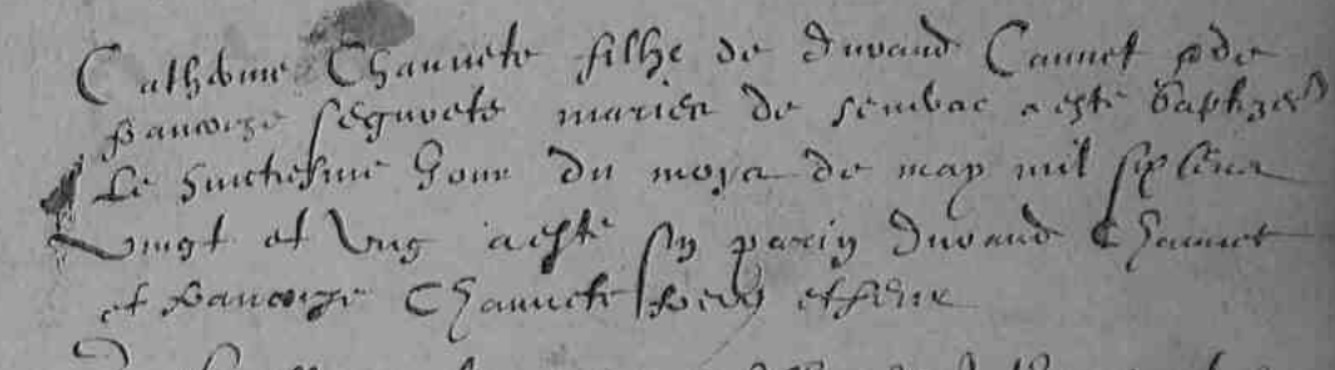 Catherine Chauvete filhe de Durand Cauvet et de
francoyse segurete mariés de senbac a esté baptizée
Le huictiesme Jour du moys de may mil six cens
vingt et ung a esté son parin Durand Chauvet
et francoyse Chauvete frere et sœur